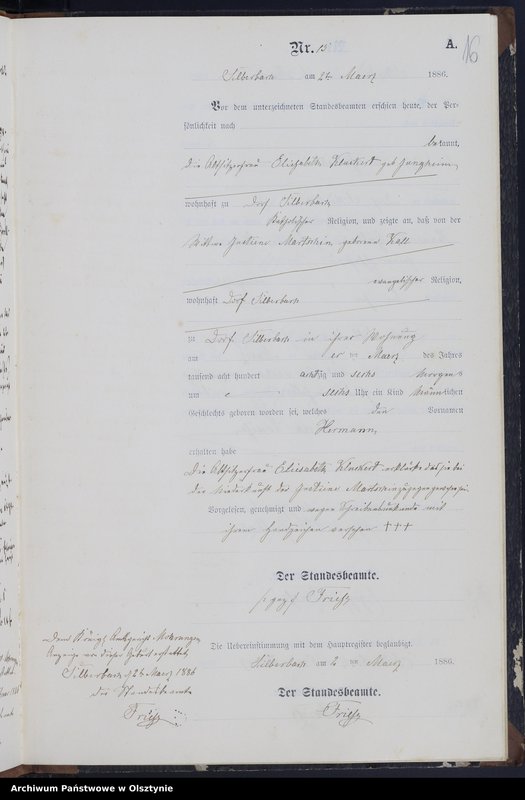 A.
16
Nr. 15
Silberbach am 2ten Maerz 1886.
Vor dem unterzeichneten Standesbeamten erschien heute, der Per-
sönlichkeit nach
bekannt,
die Altsitzerfrau Elisabeth Klackert geb. Jungheim
wohnhaft zu Dorf Silberbach
Katholischer Religion, und zeigte an, daß von der
Wittwe Justine Martschin geborene Kall
evangelischer Religion,
wohnhaft Dorf Silberbach
zu Dorf Silberbach in ihrer Wohnung
am ten Maerz des Jahres
tausend acht hundert achtzig und sechs Morgens
um sechs Uhr ein Kind männlichen
Geschlechts geboren worden sei, welches den Vornamen
Hermann
erhalten habe
Die Altsitzerfrau Elisabeth Klackert erklärte das sie bei
der Niederkunft der Justine Martschin zugegen gewesen sei.
Vorgelesen, genehmigt und wegen Schreibensunkunde mit
ihrem Handzeichen versehen †††
Der Standesbeamte.
gez. Friese
Die Uebereinstimmung mit dem Hauptregister beglaubigt.
Silberbach am 2 ten Maerz 1886.
Der Standesbeamte.
Friese
Dem Königl. Amtsgericht Mohrungen
Anzeige von dieser Geburt erstattet.
Silberbach, d 2ten Maerz 1886
Der Standesbeamte
Friese
Archiwum Państwowe w Olsztynie